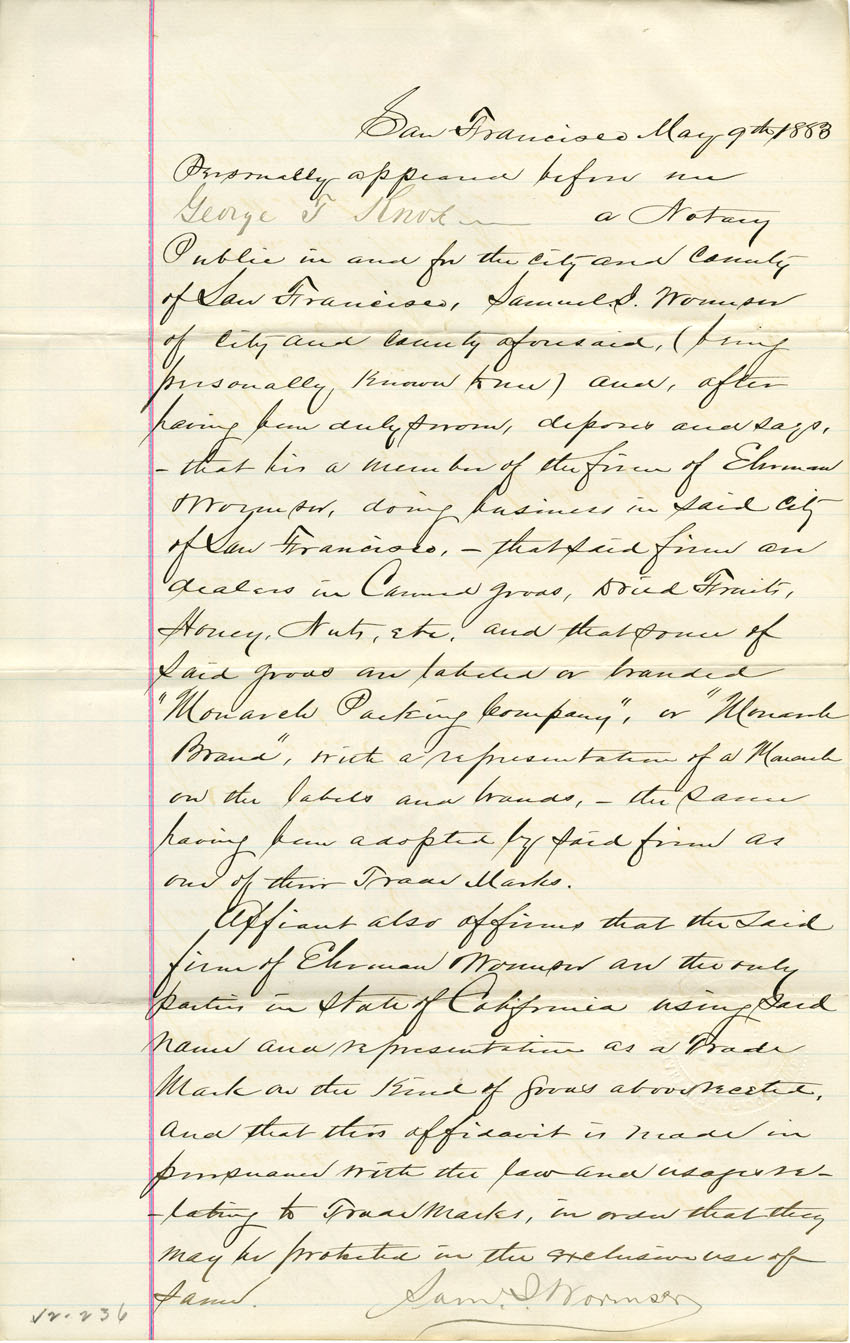 San Francisco May 9th, 1883
Personally appeared before me
George T Knox a Notary
Public in and for the City and County
of San Francisco, Samuel I. Wormser
of City and County aforesaid, (being
personally known to me) and, after
having been duly sworn, deposes and says,
- that his a member of the firm of Ehrman
Wormser, doing business in said City
of San Francisco, - that said firm are
dealers in Canned goods, Dried Fruits,
Honey, Nuts, etc, and that some of
said goods are labeled or branded
"Monarch Packing Company", or "Monarch
Brand", with a representation of a Monarch
on the labels and brands, - the same
having been adopted by said firm as
one of their Trade Marks.
Affiant also affirms that the said
firm of Ehrman Wormser are the only
parties in State of California using said
name and representation as a Trade
Mark on the kind of goods above recited,
and that this affidavit is made in
pursuance with the law and usages re-
-lating to Trade Marks, in order that they
may be protected in the exclusive use of
same. Sam. I. Wormser
V2-236